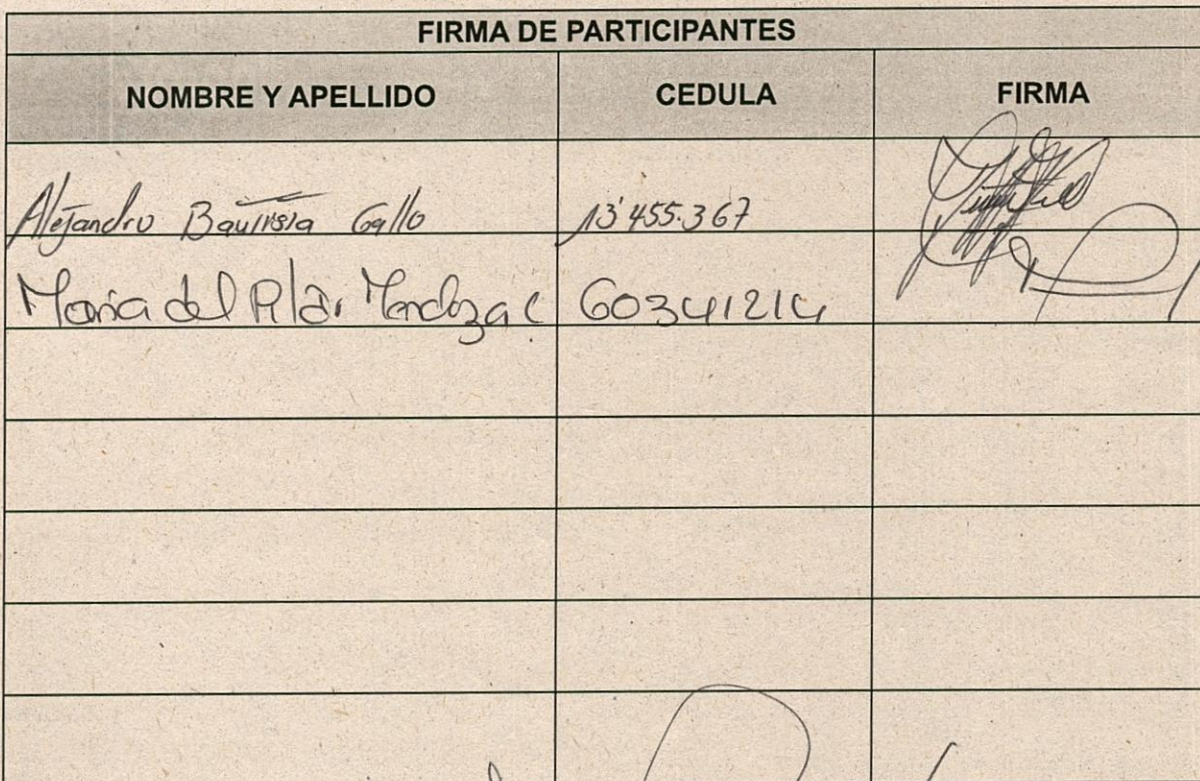 FIRMA DE PARTICIPANTES
NOMBRE Y APELLIDO CEDULA FIRMA
Alejandro Bautista Gallo 13'455.367
Maria del Pilar Mendoza C 60341214